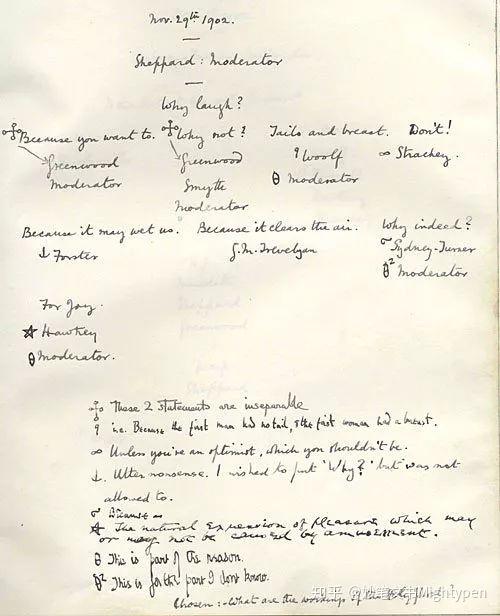 Nov. 29th 1902.
Sheppard: Moderator
Why laugh?
Because you want to. Why not? Tails and breast. Don't!
Greenwood Greenwood ♀ Woolf ∞ Strachey.
Moderator Smyth θ Moderator
Moderator
Because it may wet us. Because it clears the air. Why indeed?
↓ Forster G.M. Trevelyan σ Sydney-Turner
θ² Moderator
For Joy.
☆ Hawtrey
θ Moderator.
These 2 statements are inseparable
♀ i.e. Because the first man had no tail, & the first woman had a breast.
∞ Unless you're an optimist, which you shouldn't be.
↓. Utter nonsense. I wished to put 'Why?' but was not
allowed to.
σ
☆ The natural expression of pleasure which may
or may not be caused by amusement.
θ This is part of the reason.
θ² This is for the part I dont know.
Chosen:- What are the of the
知乎 @妙笔文书Mightypen